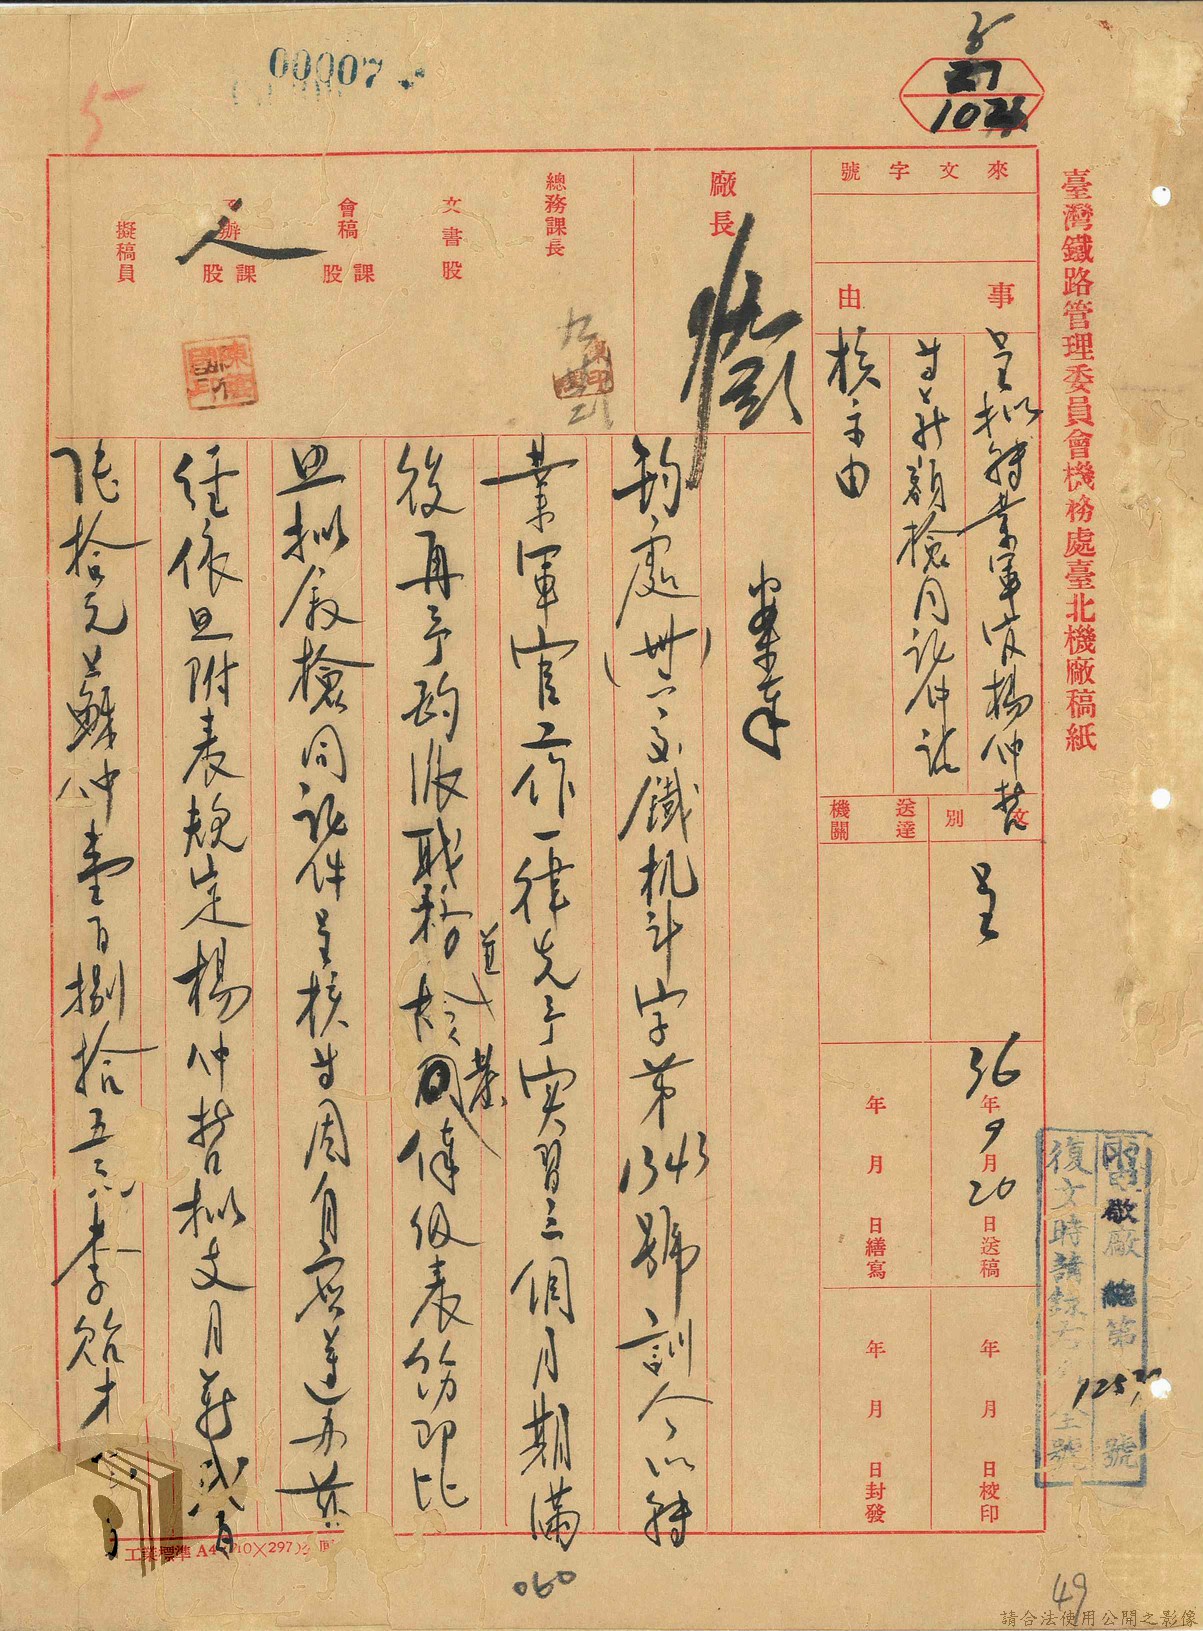 00007
5
27
臺灣鐵路管理委員會機務處臺北機廠稿紙
來文字號
事由
呈拟轉業軍官楊仲哲
等薪額檢同証件請
核示由
文別
呈
送達機關
36年9月20日送稿
年月日繕寫
年月日校印
年月日封發
廠長
總務課長
文書股
會稿課股
辦課股
人
擬稿員
案奉
鈞處(卅六)交鐵机斗字第1343號訓令以轉
業軍官工作一律先予實習三個月期滿
後再予酌派職務
檢同
俸级表飭即比
照拟敘檢同証件呈核等因自應遵办茲
經依照附表規定楊仲哲拟支月薪弍百
陸拾元蘇仲
壹百捌拾五元李
才
敝廠總第
號
復文時請
全號
工業標準 A4
060
49
請合法使用公開之影像